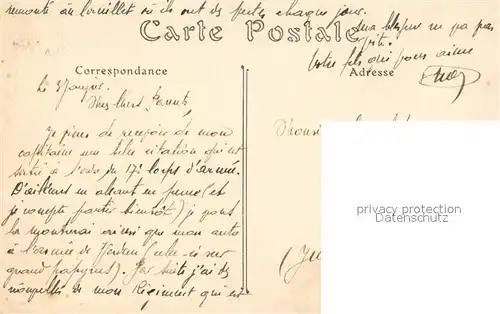 remonté à où ils ont des pertes chaque jour.
ma blessure ne va pas
Carte Postale
votre fils qui vous aime
Correspondance
Adresse
Le 3 Janvier
Mes chers Parents
Je viens de recevoir de mon
capitaine une belle citation qui est
à l'ordre du 17e corps d'armée.
D'ailleurs en allant en perme (et
je compte partir bientôt) je vous
la montrerai ainsi que mon autre
à l'armée de Verdun (celle-ci sur
grand papyrus). Par suite j'ai des
nouvelles de mon Régiment qui est
Monsieur
privacy protection
Datenschutz